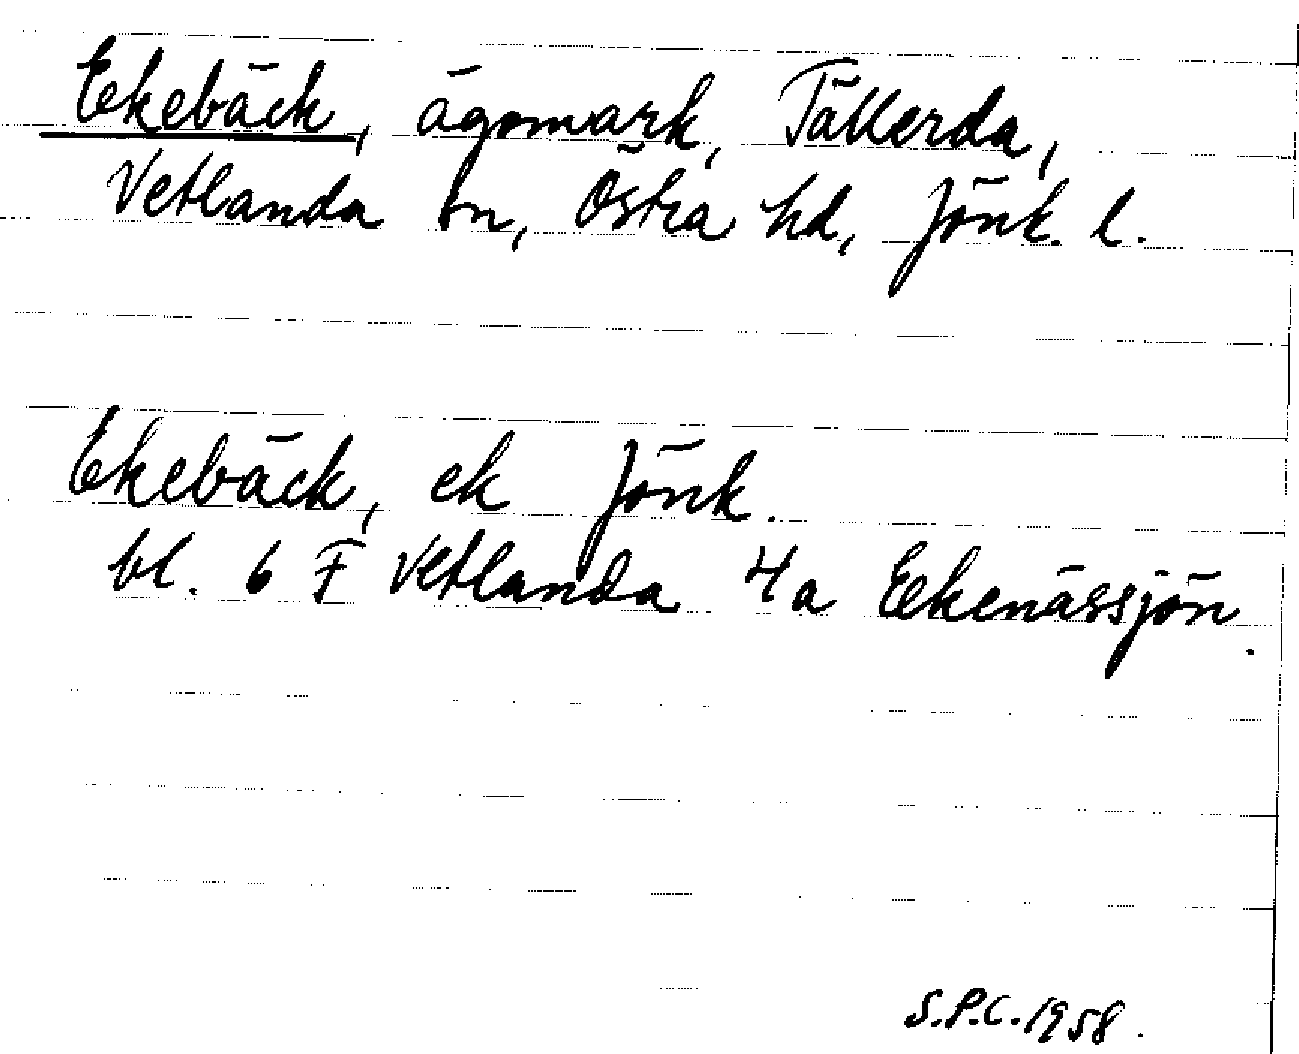 Ekebäck, ägomark, Tällerda,
Vetlanda sn, Östra hd, Jönk. l.
Ekebäck, ek Jönk.
bl. 6 F Vetlanda 4a Ekenässjön.
S.P.C. 1958.